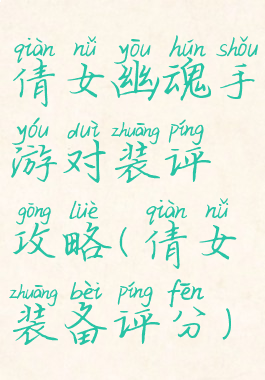 qiàn nǚ yōu hún shǒu
倩女幽魂手
yóu duì zhuāng píng
游对装评
gōng lüè qiàn nǚ
攻略(倩女
zhuāng bèi píng fēn
装备评分)